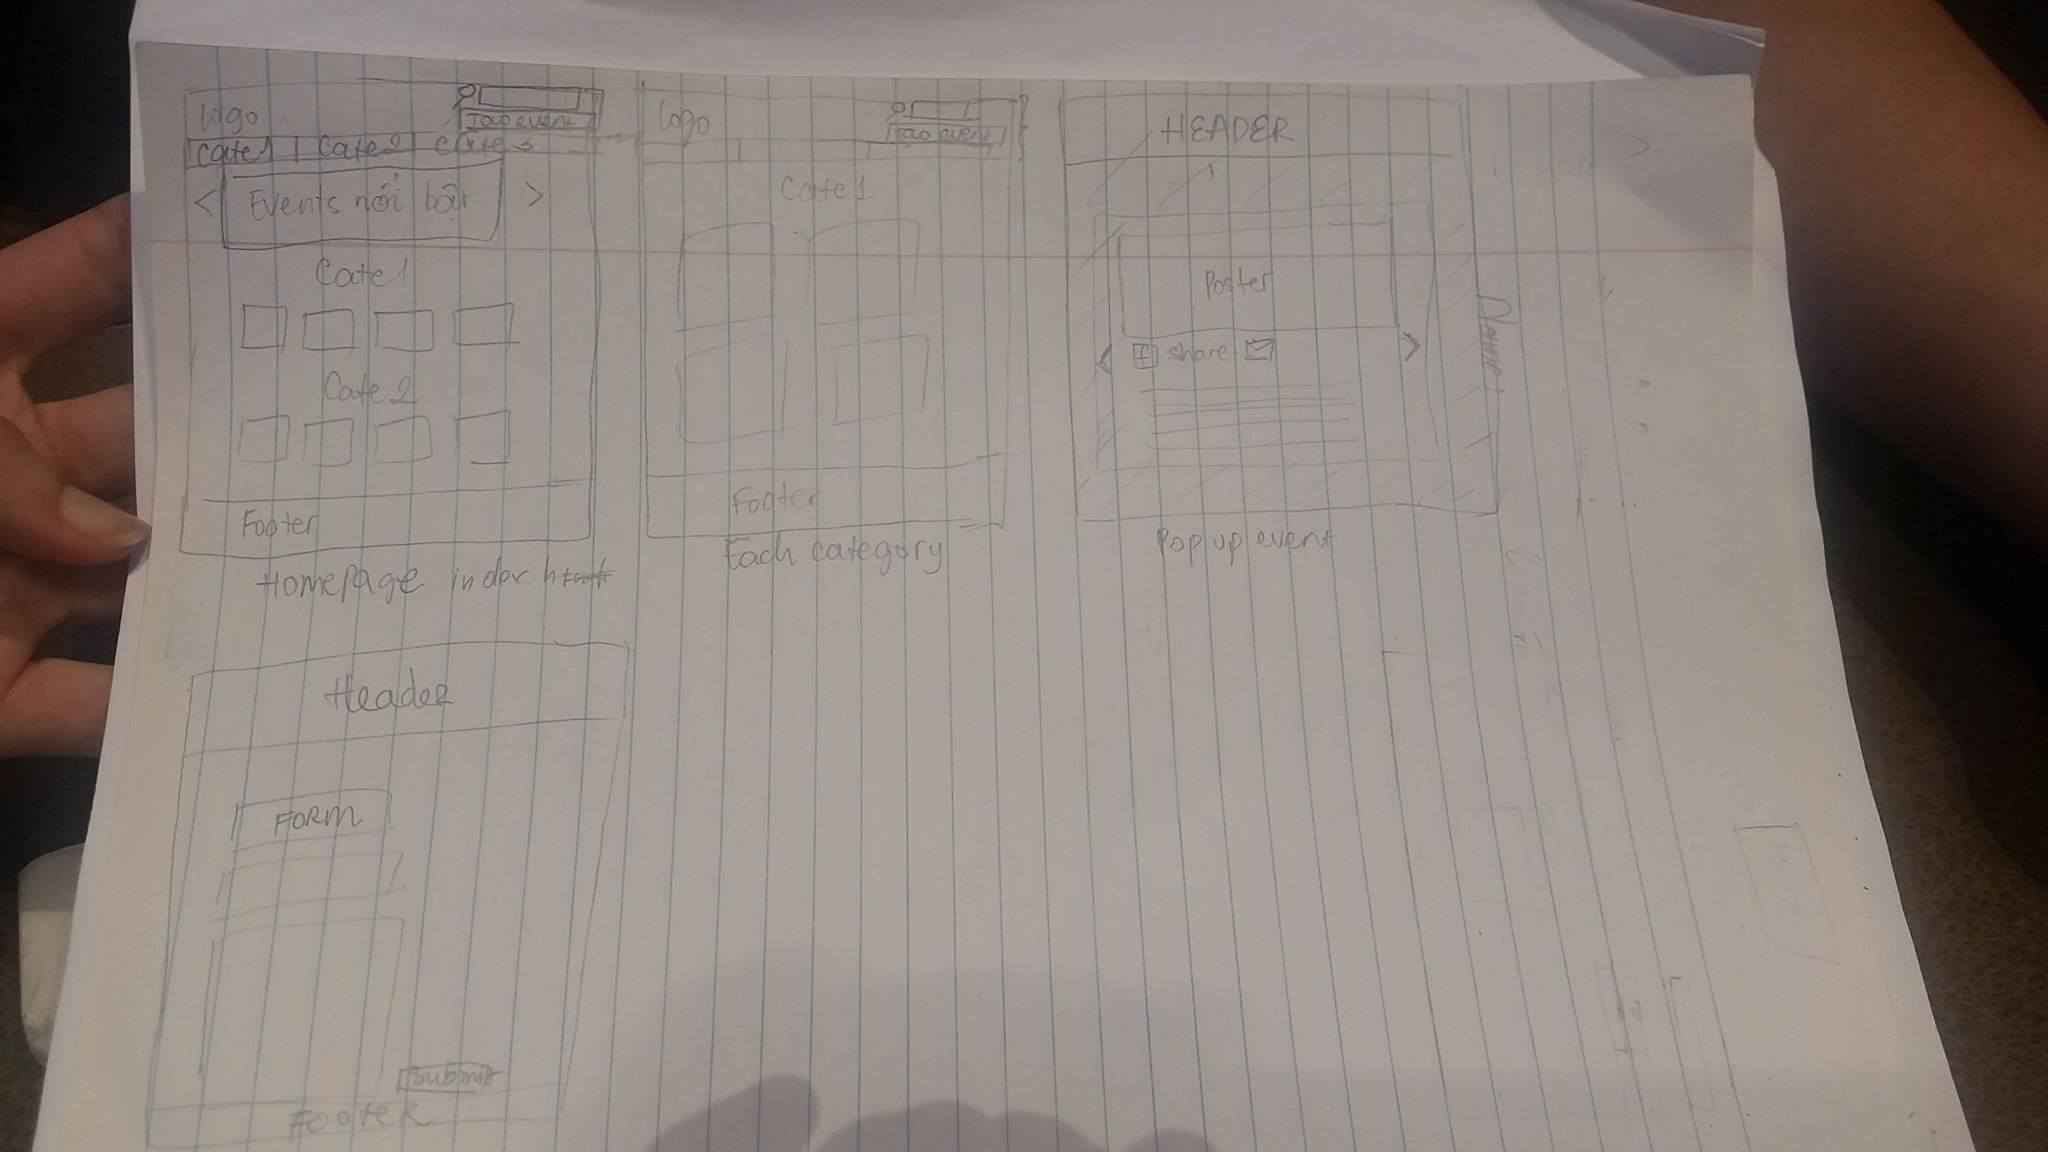 Logo
Tạo event
Cate 1 Cate 2 Cate 3
< Events nổi bật >
Cate 1
Cate 2
Footer
Homepage index.html
Logo
Tạo event
Cate 1
Footer
Each category
HEADER
Poster
< f share >
Pop up event
Header
FORM
Submit
FOOTER